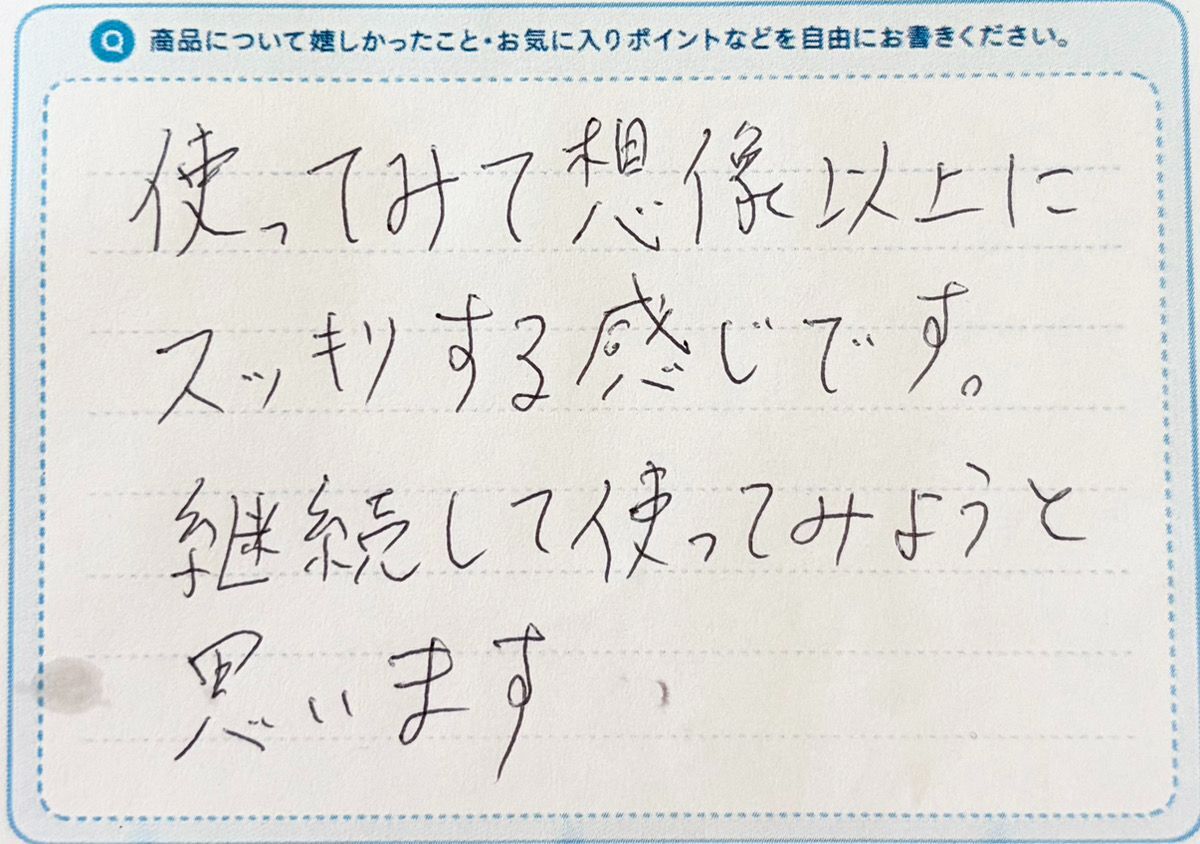 Q 商品について嬉しかったこと・お気に入りポイントなどを自由にお書きください。
使ってみて想像以上に
スッキリする感じです。
継続して使ってみようと
思います